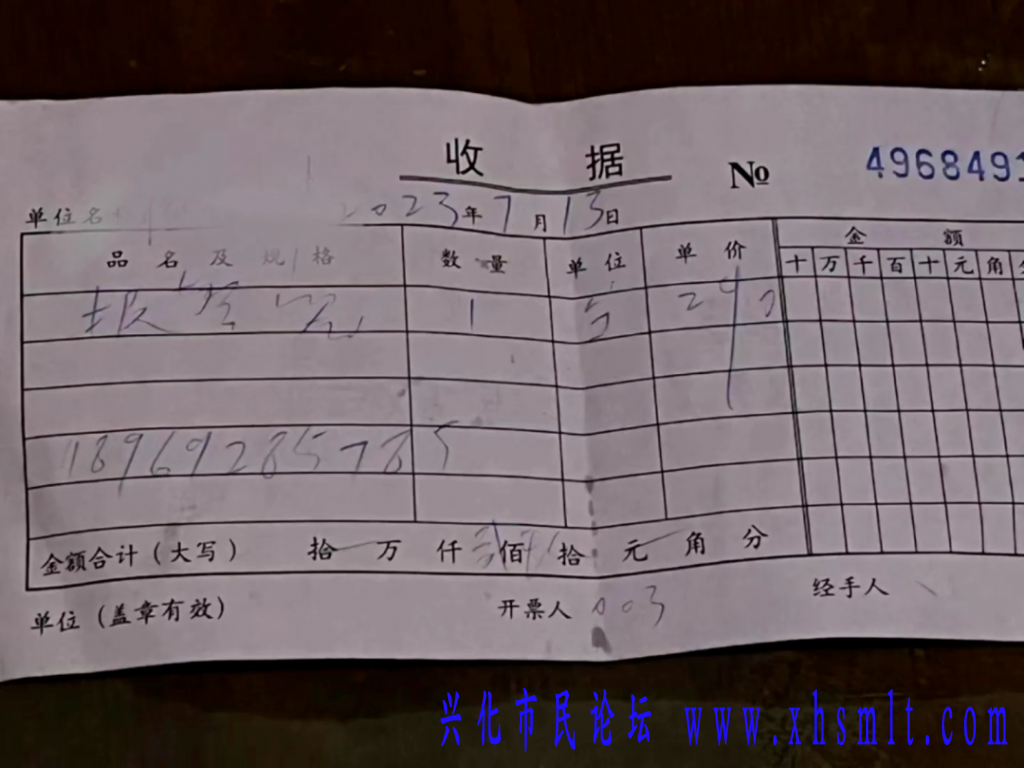 收据
№ 4968491
单位名 2023年7月13日
品名及规格 数量 单位 单价 金额
十万千百十元角
1 290
18969285785
金额合计(大写) 拾 万 仟 贰 佰 拾 元 角 分
单位(盖章有效) 开票人 003 经手人
兴化市民论坛 www.xhsmlt.com